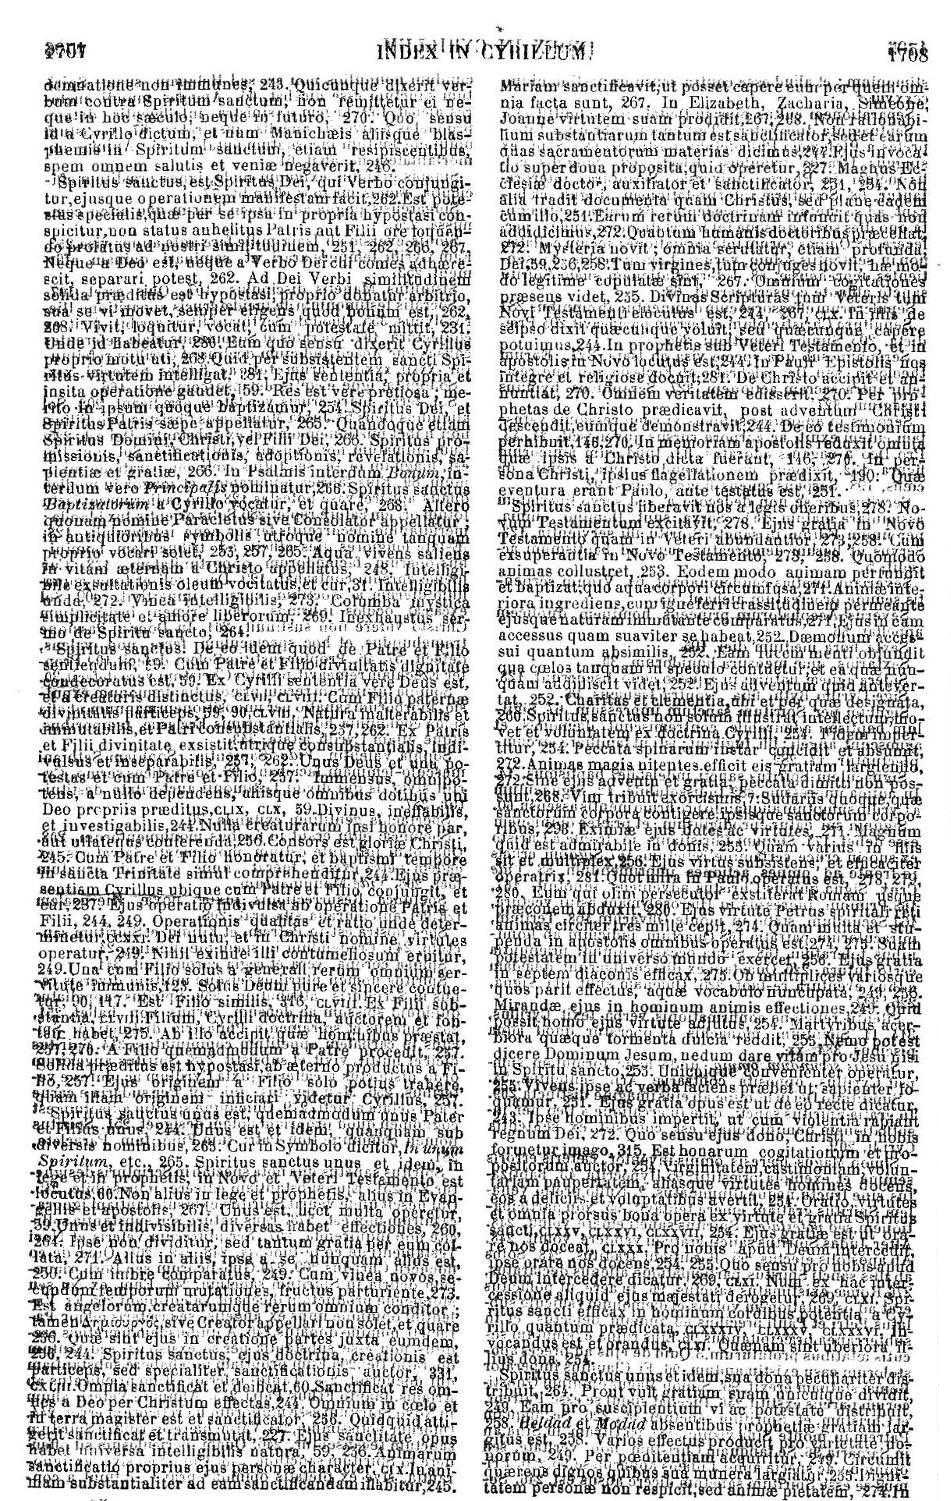 1707 INDEX IN CYRILLUM. 1708
demnatione non immunes, 243. Quicunque dixerit ver-
bum contra Spiritum sanctum, non remittetur ei ne-
que in hoc sæculo, neque in futuro, 270. Quo sensu
id a Cyrillo dictum, et num Manichæis aliisque blas-
phemis in Spiritum sanctum, etiam resipiscentibus,
spem omnem salutis et veniæ negaverit, 246.
Spiritus sanctus, est Spiritus Dei, qui Verbo conjungi-
tur, ejusque operationem manifestam facit, 262. Est pote-
stas specialis, quæ per se ipsa in propria hypostasi con-
spicitur, non status anhelitus Patris aut Filii ore
ad nostri similitudinem, 251, 262, 266, 267.
Neque a Deo est, neque a Verbo Dei comes adhære-
scit, separari potest, 262. Ad Dei Verbi similitudinem
solida præditus est hypostasi, proprio donatur arbitrio,
sua se vi movet, semper eligens quod bonum est, 262,
268. Vivit, loquitur, vocat, cum potestate mittit, 231.
Unde id habeatur, 286. Eum quo sensu dixerit Cyrillus
proprio motu ati, 268. Quid per subsistentem sancti Spi-
ritus virtutem intelligat, 281. Ejus sententia, propria et
insita operatione gaudet, 59. Res est vere pretiosa; me-
rito in ipsum quoque baptizamur, 254. Spiritus Dei, et
Spiritus Patris sæpe appellatur, 265. Quandoque etiam
Spiritus Domini, Christi, vel Filii Dei, 266. Spiritus pro-
missionis, sanctificationis, adoptionis, revelationis, sa-
pientiæ et gratiæ, 266. In Psalmis interdum Bonum, in-
terdum vero Principalis nominatur, 266. Spiritus sanctus
Baptizatorum a Cyrillo vocatur, et quare, 268. Altero
quoque nomine Paracletus sive Consolator appellatur;
in antiquioribus symbolis utroque nomine tanquam
proprio vocari solet, 253, 257, 265. Aqua vivens saliens
in vitam æternam a Christo appellatus, 248. Intelligi-
bile exsultationis oleum vocitatus, et cur, 31. Intelligibilis
unda, 272. Vinea intelligibilis, 273. Columba mystica
simplicitate et amore liberorum, 269. Inexhaustus ser-
mo de Spiritu sancto, 264.
Spiritus sanctus. De eo idem quod de Patre et Filio
sentiendum, 59. Cum Patre et Filio divinitatis dignitate
condecoratus est, 59. Ex Cyrilli sententia vere Deus est,
et a creaturis distinctus, CLVII, CLVIII. Cum Filio paternæ
divinitatis particeps, 59, 90, CLVIII. Natura inalterabilis et
immutabilis, et Patri consubstantialis, 257, 262. Ex Patris
et Filii divinitate exsistit, utrique consubstantialis, indi-
vulsus et inseparabilis, 257, 262. Unus Deus et una po-
testas et cum Patre et Filio, 257. Immensus, omnipo-
tens, a nullo dependens, aliisque omnibus dotibus uni
Deo propriis præditus, CLIX, CLX, 59. Divinus, ineffabilis,
et investigabilis, 244. Nulla creaturarum ipsi honore par,
aut ullatenus conferenda, 256. Consors est gloriæ Christi,
245. Cum Patre et Filio honoratur, et baptismi tempore
in sancta Trinitate simul comprehenditur, 244. Ejus præ-
sentiam Cyrillus ubique cum Patre et Filio, conjungit, et
cur, 257. Ejus operatio indivulsa ab operatione Patris et
Filii, 244, 249. Operationis qualitas et ratio unde deter-
minetur, CCXXI. Dei nutu, et in Christi nomine, virtutes
operatur, 249. Nihil exinde illi contumeliosum eruitur,
249. Una cum Filio solus a generali rerum omnium ser-
vitute immunis, 123. Solus Deum pure et sincere contue-
tur, 90, 117. Est Filio similis, 316, CLVIII. Ex Filii sub-
stantia, CLVIII. Filium, Cyrilli doctrina, auctorem et fon-
tem habet, 275. Ab illo accipit quæ hominibus præstat,
257, 270. A Filio quemadmodum a Patre procedit, 257.
Solida præditus est hypostasi, ab æterno productus a Fi-
lio, 257. Ejus originem a Filio solo potius trahere,
quam suam originem iniciari videtur Cyrillus, 257.
Spiritus sanctus unus est, quemadmodum unus Pater
et Filius unus, 244. Unus est et idem, quanquam sub
diversis nominibus, 265. Cur in Symbolo dicitur, In unum
Spiritum, etc., 265. Spiritus sanctus unus et idem, in
lege et in prophetis, in Novo et Veteri Testamento est
locutus, 60. Non alius in lege et prophetis, alius in Evan-
geliis et apostolis, 267. Unus est, licet multa operetur,
59. Unus et indivisibilis, diversas habet effectiones, 260,
264. Ipse non dividitur, sed tantum gratia per eum col-
lata, 271. Alius in aliis, ipse a se nunquam alius est,
250. Cum imbre comparatus, 249. Cum vinea novos se-
cundum temporum mutationes, fructus parturiente, 273.
Est angelorum, creatarumque rerum omnium conditor;
tamen Δημιουργός, sive Creator appellari non solet, et quare
256. Quæ sint ejus in creatione partes juxta eumdem,
256, 244. Spiritus sanctus, ejus doctrina, creationis est
particeps, sed specialiter, sanctificationis auctor, 331,
CXLIII. Omnia sanctificat et deificat, 60. Sanctificat res om-
nes a Deo per Christum effectas, 244. Omnium in cœlo et
in terra magister est et sanctificator, 256. Quidquid atti-
gerit sanctificat et transmutat, 227. Ejus sanctitate opus
habet universa intelligibilis natura, 59, 256. Animarum
sanctificatio proprius ejus personæ character, CIX. In ani-
mam substantialiter ad eam sanctificandam illabitur, 245.
Mariam sanctificavit, ut posset capere eum per quem om-
nia facta sunt, 267. In Elizabeth, Zacharia, Simeone,
Joanne virtutem suam prodidit, 267, 268. Non rationabi-
lium substantiarum tantum est sanctificator, sed et earum
quas sacramentorum materias dicimus, 244. Ejus invoca-
tio super dona proposita, quid operetur, 327. Magnus Ec-
clesiæ doctor, auxiliator et sanctificator, 251, 254. Non
alia tradit documenta quam Christus, sed plane eadem
cum illo, 251. Earum rerum doctrinam infundit quas non
addidicimus, 272. Quantum humanis doctoribus præcellat,
272. Mysteria novit; omnia scrutatur, etiam profunda
Dei, 59, 256, 258. Tum virgines, tum conjuges novit, hæ mo-
do legitime copulatæ sint, 267. Omnium cogitationes
præsens videt, 255. Divinas Scripturas tum Veteris tum
Novi Testamenti locutus est, 244, 267, CLX. In illis de
seipso dixit quæcunque voluit, seu quæcunque capere
potuimus, 244. In prophetis sub Veteri Testamento, et in
apostolis in Novo locutus est, 244. In Pauli Epistolis nos
integre et religiose docuit, 281. De Christo accipit et an-
nuntiat, 270. Omnem veritatem edisserit, 270. Per pro-
phetas de Christo prædicavit, post adventum Christi
descendit, eumque demonstravit, 244. De eo testimonium
perhibuit, 146, 270. In memoriam apostolis reduxit omnia
quæ ipsis a Christo dicta fuerant, 146, 270. In per-
sona Christi, ipsius flagellationem prædixit, 190. Quæ
eventura erant Paulo, ante testatus est, 251.
Spiritus sanctus liberavit nos a legis oneribus, 278. No-
vum Testamentum excitavit, 278. Ejus gratia in Novo
Testamento quam in Veteri abundantior, 273, 258. Cum
exsuperantia in Novo Testamento, 273, 258. Quomodo
animas collustret, 253. Eodem modo animam perfundit
et baptizat, quo aqua corpori circumfusa, 271. Animæ inte-
riora ingrediens, cum igne ferri crassitudinem permeante
ejusque naturam immutante comparatus, 271. Ejus in eam
accessus quam suaviter se habeat, 252. Dæmonum acces-
sui quantum absimilis, 252. Eam lucem menti offundit
qua cœlos tanquam in speculo contuetur, et ea quæ nun-
quam addidisset videt, 252. Ejus adventum quid antever-
tat, 252. Charitas et clementia, ubi et per quæ designata,
266. Spiritus sanctus non solum illustrat intellectum, mo-
vet et voluntatem ex doctrina Cyrilli, 254. Fidem imper-
titur, 254. Peccata spinarum instar concidit et absumit,
272. Animas magis nitentes efficit eis gratiam largiendo,
272. Sine ejus adventu et gratia, peccata dimitti non pos-
sunt, 268. Vim tribuit exorcismis, 7. Sudariis quoque, quæ
sanctorum corpora contigere, ipsisque sanctorum corpo-
ribus, 298. Eximiæ ejus dotes ac virtutes, 271. Magnum
quid est admirabile in donis, 253. Quam varius in illis
sit et multiplex, 256. Ejus virtus subsistens et efficaciter
operatrix, 281. Quot mira in Paulo operatus est, 278, 279,
280. Eum qui olim persecutor exstiterat Romam usque
præconem abduxit, 280. Ejus virtute Petrus spirituali reti
animas circiter tres mille cepit, 274. Quam multa et stu-
penda in apostolis omnibus operatus est, 274, 275. Suam
potestatem in universo mundo exercet, 256. Ejus gratia
in septem diaconis efficax, 275. Ob multiplices variosque
quos parit effectus, aquæ vocabulo nuncupata, 249, 250.
Mirandæ ejus in hominum animis effectiones, 249. Quid
possit homo ejus virtute adjutus, 254. Martyribus acer-
biora quæque tormenta dulcia reddit, 256. Nemo potest
dicere Dominum Jesum, nedum dare vitam pro Jesu nisi
in Spiritu sancto, 253. Unicuique convenienter operatur,
255. Vivens ipse ac verba faciens præbet ut sapienter lo-
quamur, 251. Ejus gratia opus est ut de eo recte dicatur,
243. Ipse hominibus impertit, ut cum violentia rapiant
regnum Dei, 272. Quo sensu ejus dono, Christi in nobis
formetur imago, 315. Est bonarum cogitationum et pro-
positorum auctor, 254. Virginitatem, castimoniam, volun-
tariam paupertatem, aliasque virtutes homines docens,
eos a deliciis et voluptatibus avertit, 254. Oratio, virtutes
et omnia prorsus bona opera ex virtute et gratia Spiritus
sancti, CLXXV, CLXXVI, CLXXVII, 254. Ejus gratiæ est ut ora-
re nos doceat, CLXXX. Pro nobis apud Deum intercedit,
ipse orare nos docens, 254, 255. Quo sensu pro nobis apud
Deum intercedere dicatur, 269, CLXI. Num ex hac inter-
cessione aliquid ejus majestati derogetur, 269, CLXI. Spi-
ritus sancti efficax in hominum cordibus potentia a Cy-
rillo quantum prædicata, CLXXXIV, CLXXXV, CLXXXVI. In-
vocandus est et orandus, CLXI. Quænam sint uberiora il-
lius dona, 254.
Spiritus sanctus unus et idem, sua dona peculiariter dis-
tribuit, 264. Prout vult gratiam suam unicuique dividit,
249. Eam pro suscipientium vi ac potestate distribuit,
253. Heldad et Modad absentibus prophetiæ gratiam lar-
gitus est, 258. Varios effectus producit pro varietate do-
norum, 249. Per pœnitentiam acquiritur, 249. Circumit
quærens dignos quibus sua munera largiatur, 255. Digni-
tatem personæ non respicit, sed animæ pietatem, 274. In